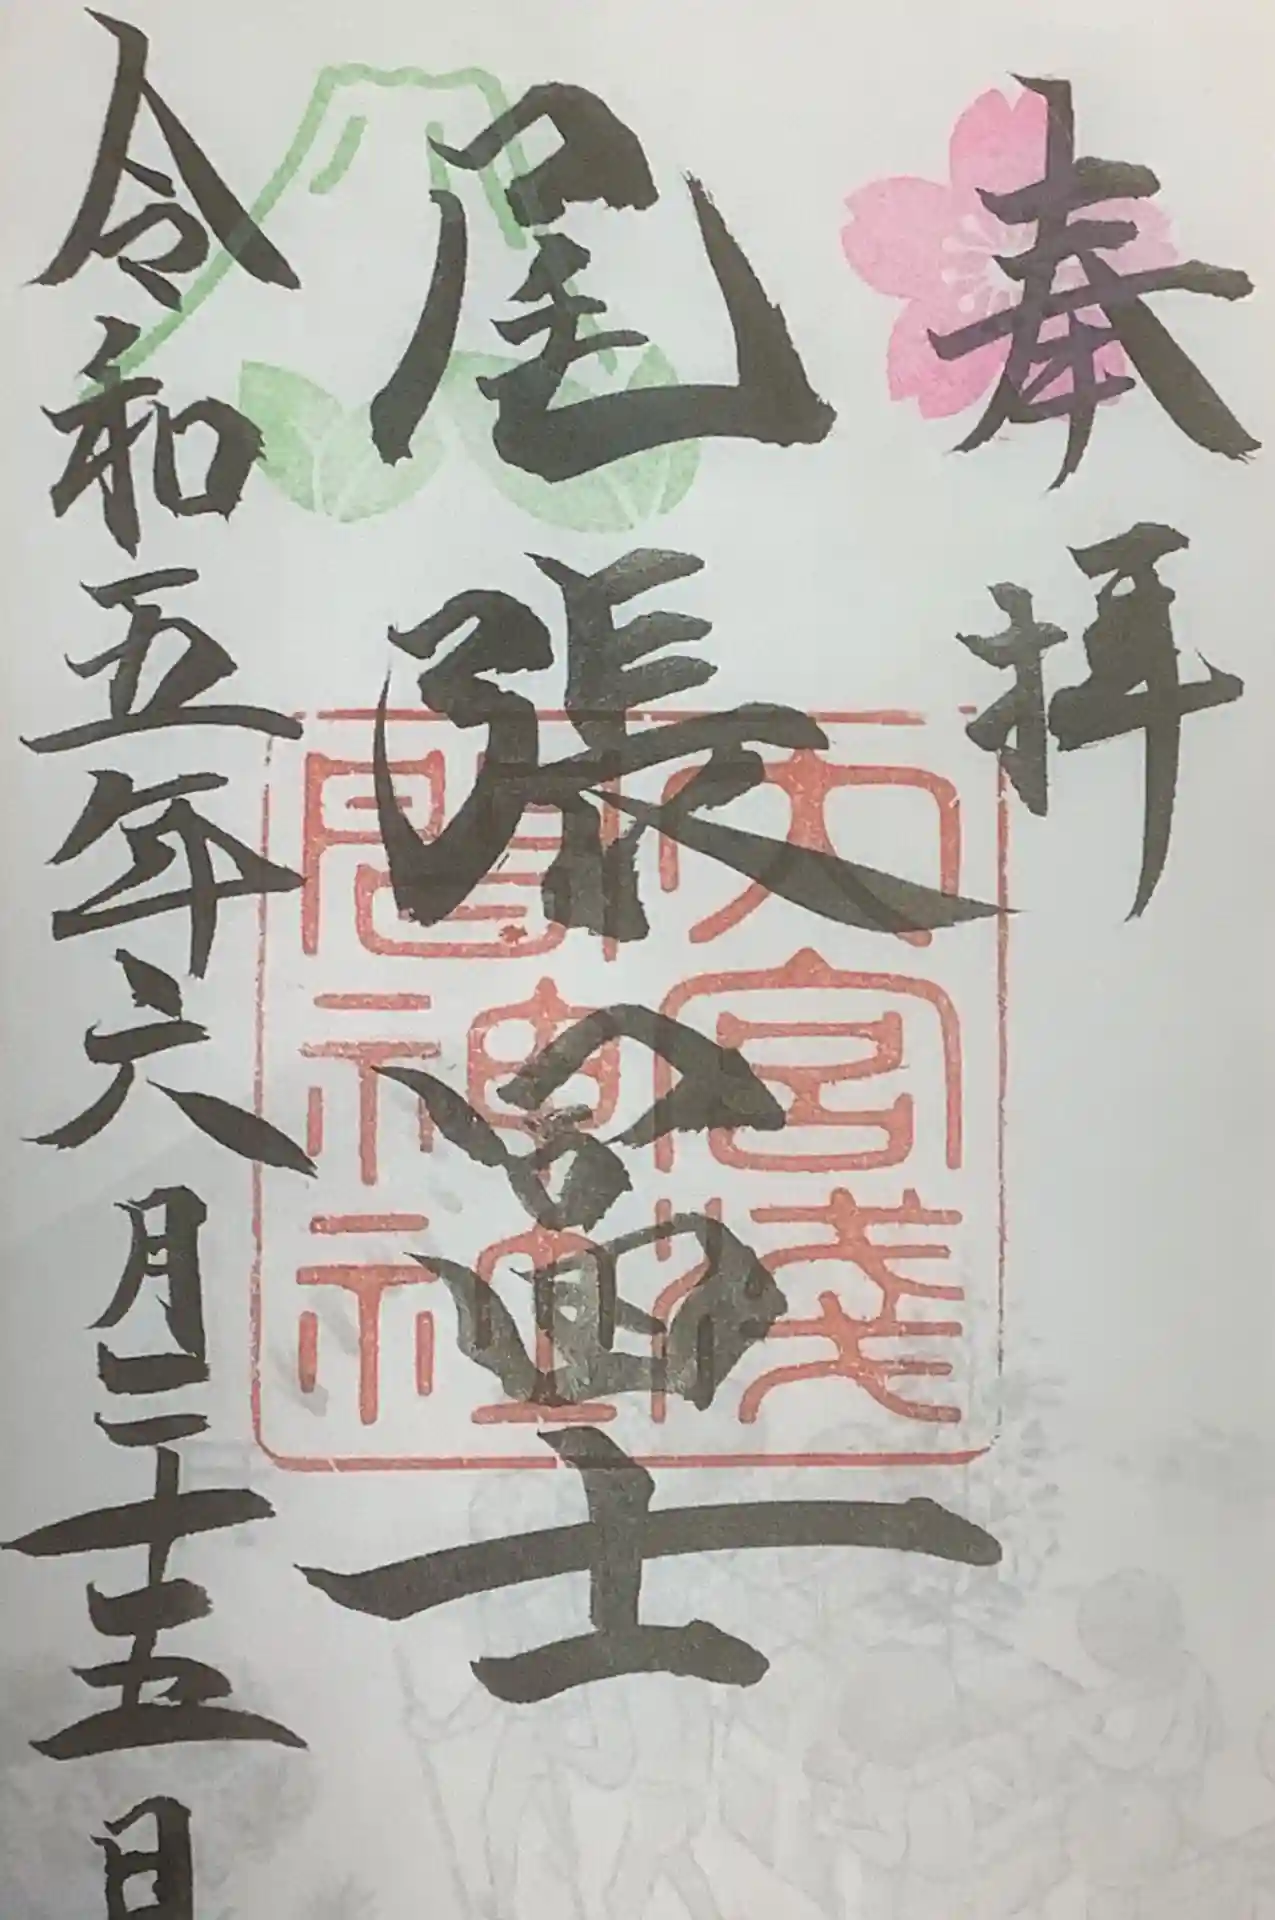 奉拝
尾張冨士
大宮淺
間神社
令和五年六月二十五日